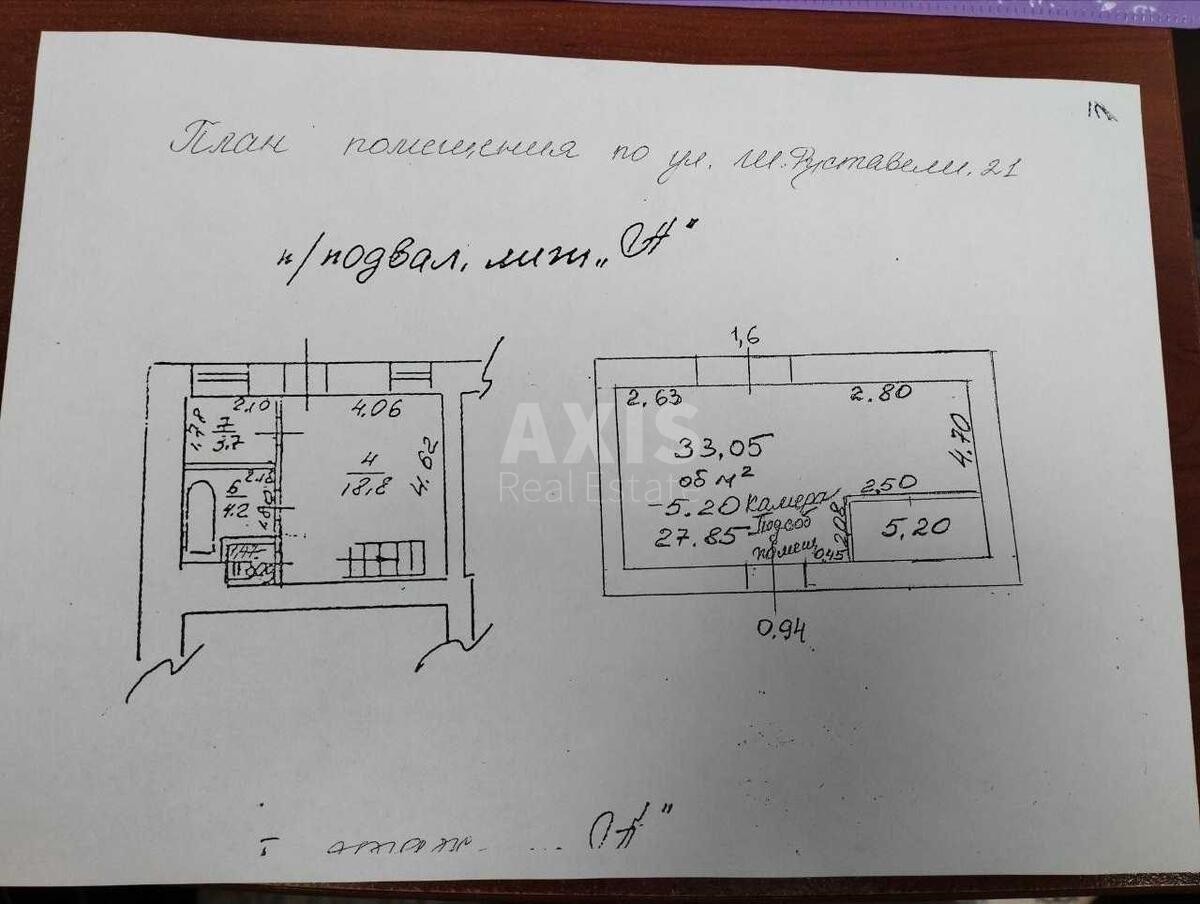 План помещения по ул. Ш. Руставели, 21
п/подвал, лит „А"
1,6
2.10
4.06
1,78
7
3.7
4
18,8
4.62
6
4.2
2.18
1.47
2.63
2.80
33,05
об м²
-5.20 Камера
27.85 Подсоб
помещ
4.70
2,50
2,08
5,20
0,45
0,94
AXIS
Real Estate
I этаж